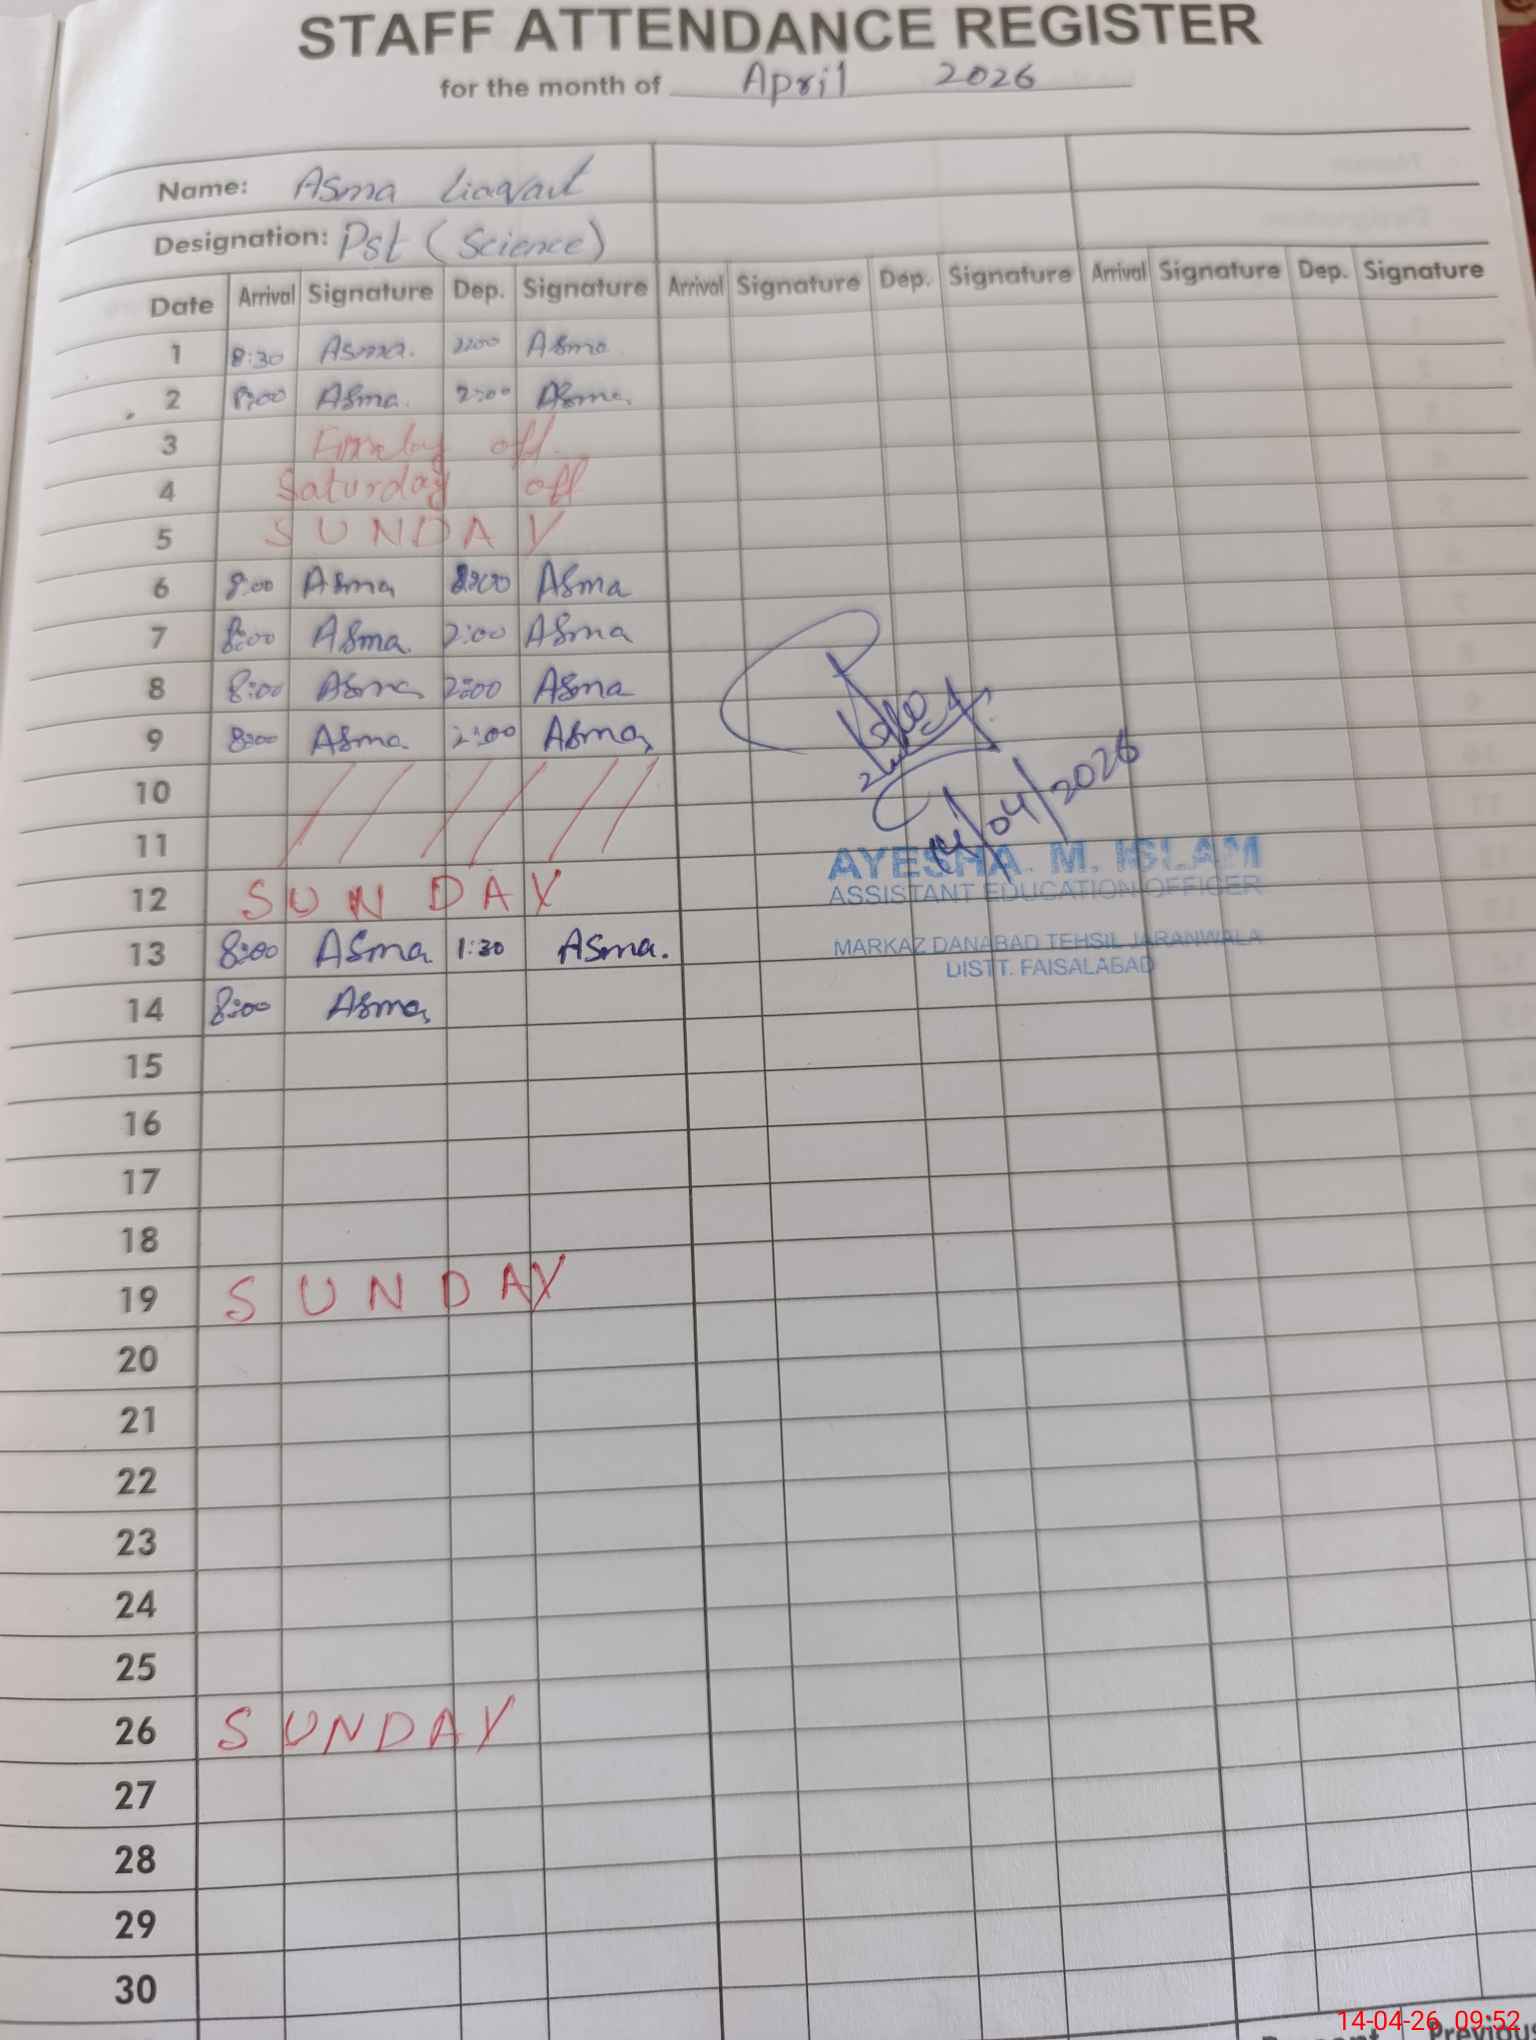 STAFF ATTENDANCE REGISTER
for the month of April 2026
Name: Asma Liaqat
Designation: Pst (Science)
Date Arrival Signature Dep. Signature Arrival Signature Dep. Signature Arrival Signature Dep. Signature
1 8:30 Asma. 2:00 Asma
2 8:00 Asma. 2:00 Asma.
3 off
4 Saturday off
5 SUNDAY
6 8:00 Asma 2:00 Asma
7 8:00 Asma 2:00 Asma
8 8:00 Asma 2:00 Asma
9 8:00 Asma. 2:00 Asma
10
11
14/04/2026
AYESHA. M. ISLAM
ASSISTANT EDUCATION OFFICER
12 SUNDAY
13 8:00 Asma 1:30 Asma.
MARKAZ DANABAD TEHSIL JARANWALA
DISTT. FAISALABAD
14 8:00 Asma
15
16
17
18
19 SUNDAY
20
21
22
23
24
25
26 SUNDAY
27
28
29
30
14-04-26 09:52